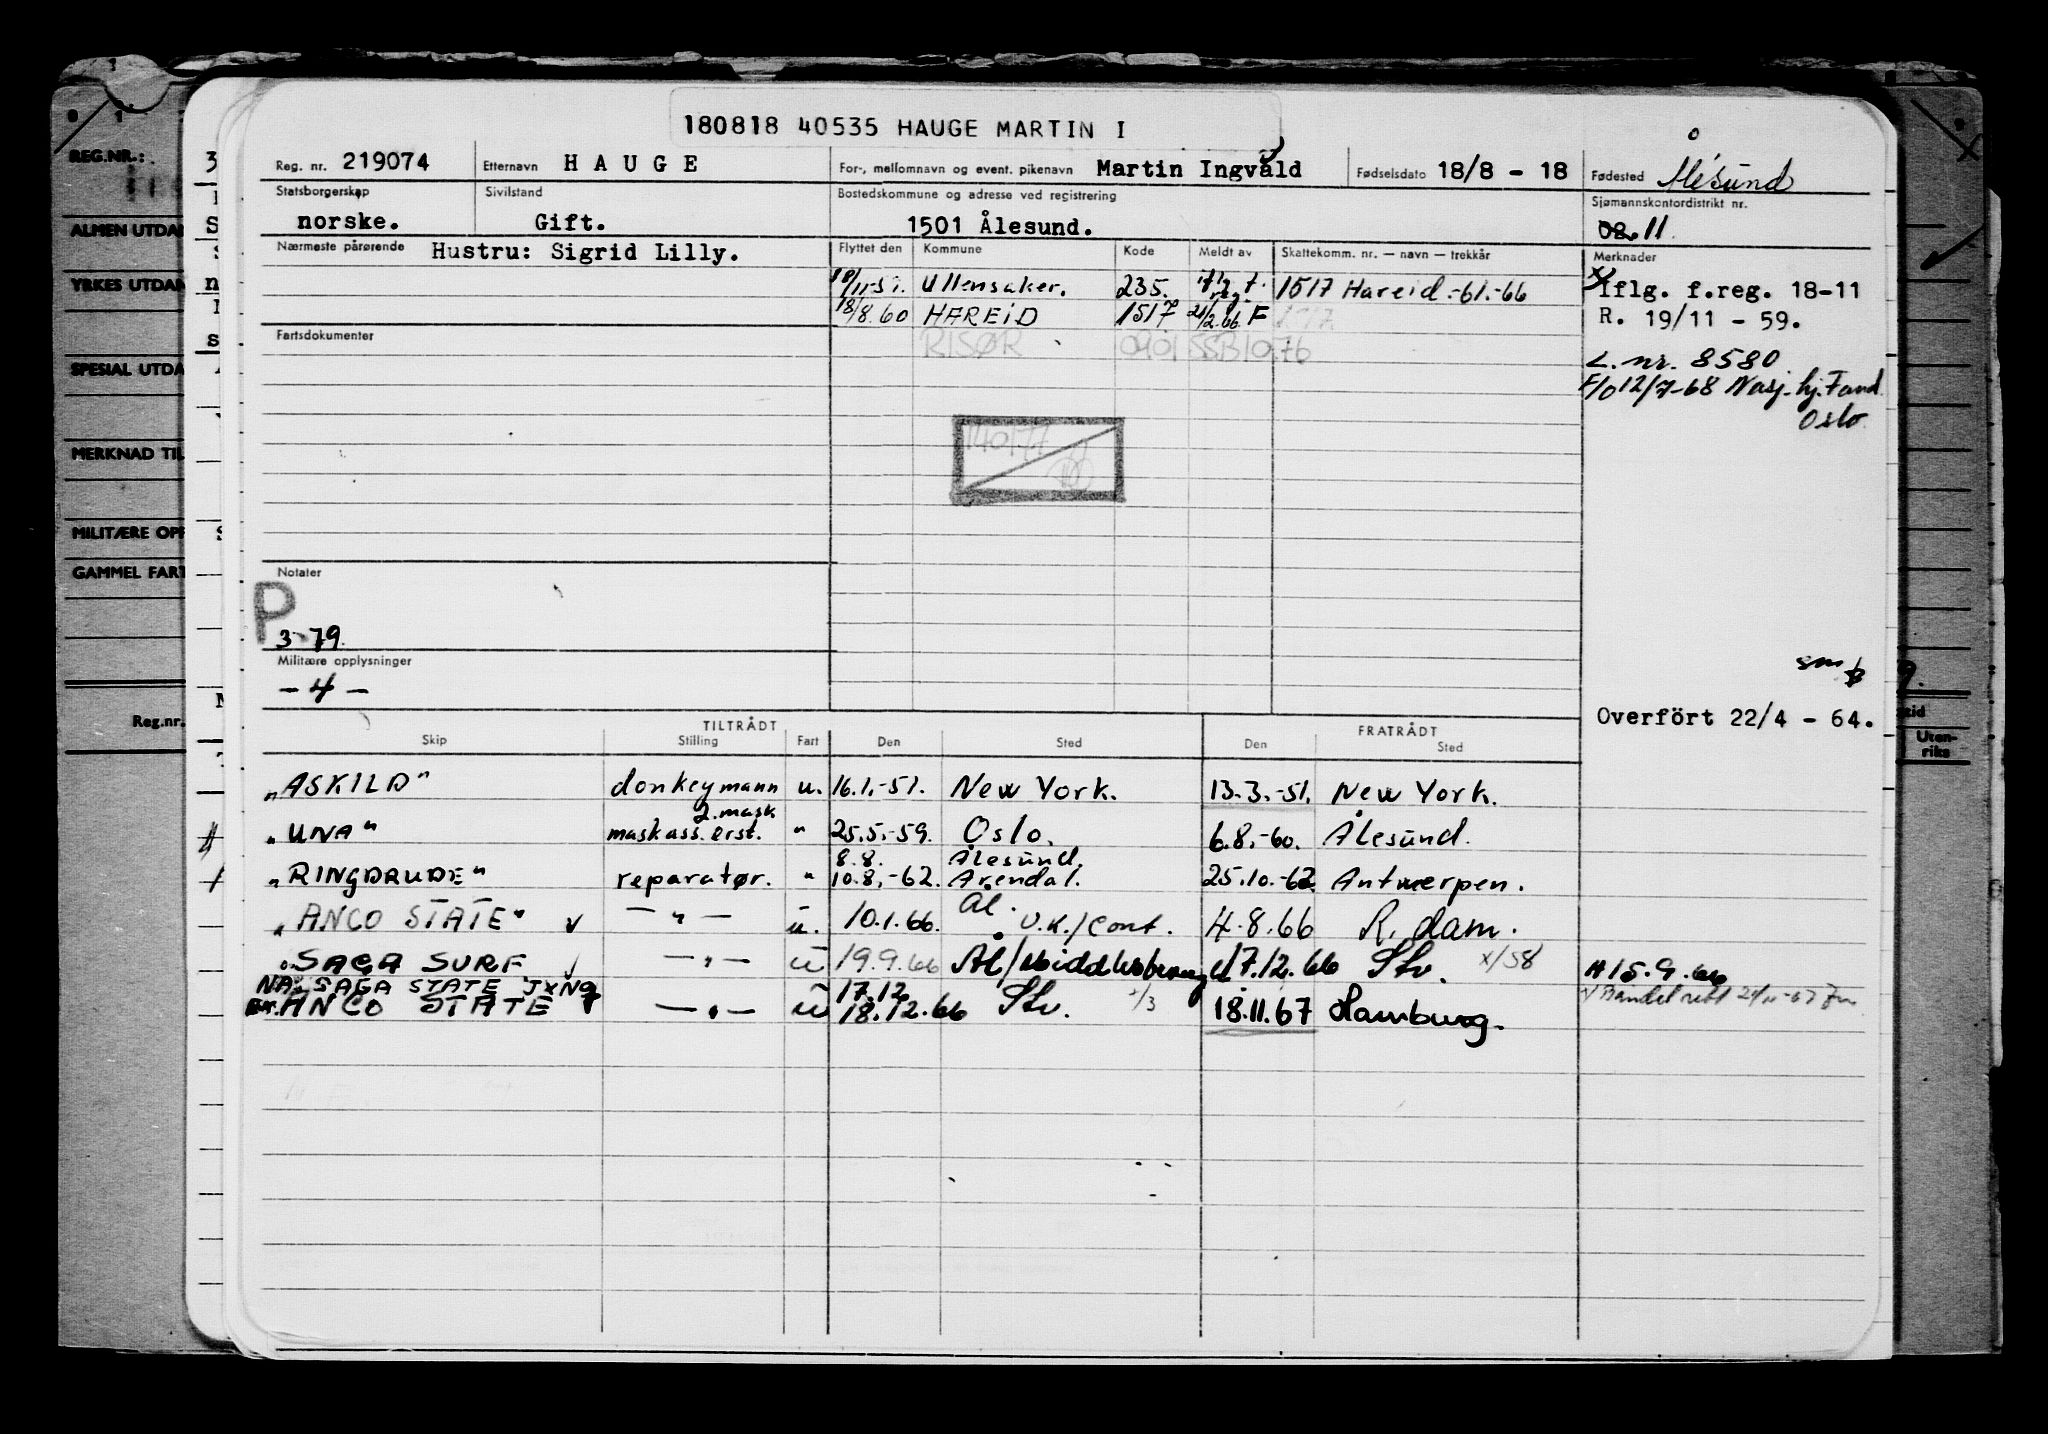 180818 40535 HAUGE MARTIN I
Reg. nr. 219074 Etternavn HAUGE For-, mellomnavn og event. pikenavn Martin Ingvald Fødselsdato 18/8 - 18 Fødested Ålesund
Statsborgerskap norske. Sivilstand Gift. Bostedskommune og adresse ved registrering 1501 Ålesund. Sjømannskontordistrikt nr. 08. 11.
Nærmeste pårørende Hustru: Sigrid Lilly. Flyttet den Kommune Kode Meldt av Skattekomm. nr. — navn — trekkår Merknader
Ullensaker. 235. 1517 Hareid.-61.-66
18/8.60 HAREID 1517 21/2.66. F
RISØR 0901 SSB 1076
Iflg. f.reg. 18-11
R. 19/11 - 59.
L. nr. 8580
F/O 12/7-68 Nasj. hj. Fond
Oslo
Fartsdokumenter
140177
Notater
P
3-79.
Militære opplysninger
- 4 -
Overført 22/4 - 64.
TILTRÅDT FRATRÅDT
Skip Stilling Fart Den Sted Den Sted
"ASKILD" donkeymann u. 16.1.-51. New York. 13.3.-51. New York.
2. mask
"UNA" maskass. erst. " 25.5.-59. Oslo. 6.8.-60. Ålesund.
8.8. Ålesund.
"RINGDRUDE" reparatør. " 10.8.-62. Arendal. 25.10.-62 Antwerpen.
Ål.
"ANCO STATE" — " — u. 10.1.66. U.K./Cont. 4.8.66 R.dam.
"SAGA SURF — " — u 19.9.66 Ål/Middlesbroug 17.12.66 Stv. x/58 15.9.66
NA: SAGA STATE JXNQ 17.12
ANCO STATE — " — u 18.12.66 Stv. 18.11.67 Hamburg.
REG.NR.:
ALMEN UTDA
YRKES UTDA
SPESIAL UTDA
MERKNAD TIL
MILITÆRE OPP
GAMMEL FART
Reg.nr.
Uten-
riks